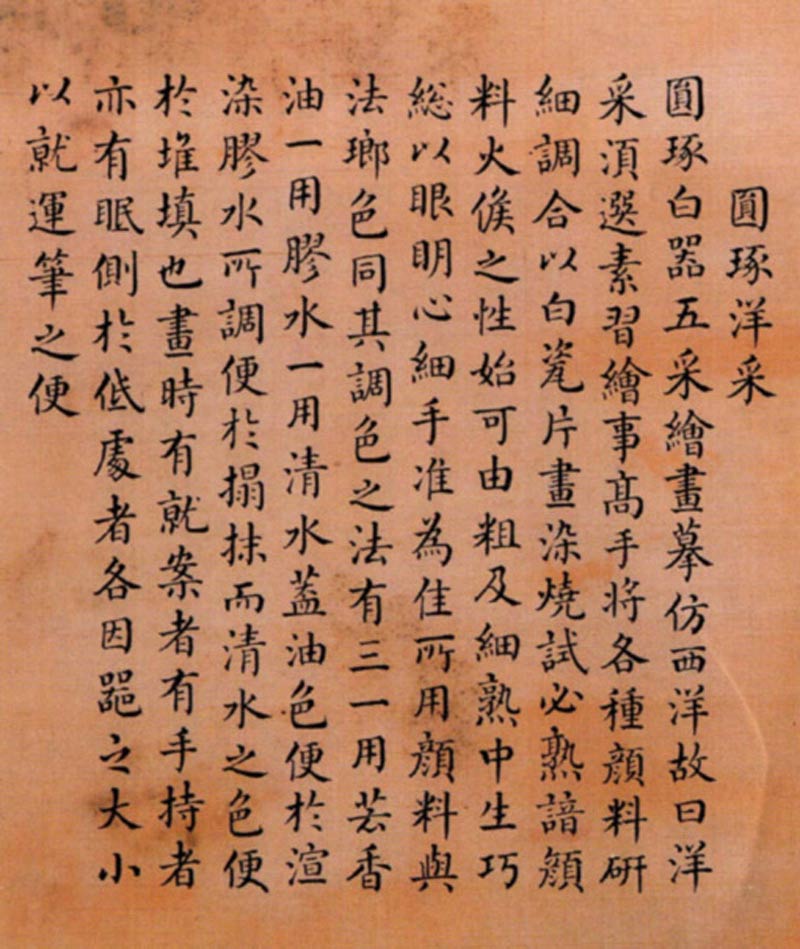 圓琢洋采
圓琢白器五采繪畫摹仿西洋故曰洋
采湏選素習繪事髙手将各種顔料研
細調合以白瓷片畫染燒試必熟諳顔
料火候之性始可由粗及細熟中生巧
総以眼明心細手准為佳所用顔料與
法瑯色同其調色之法有三一用芸香
油一用膠水一用清水葢油色便於渲
染膠水所調便於搨抹而清水之色便
於堆填也畫時有就案者有手持者
亦有眠側於低處者各因器之大小
以就運筆之便